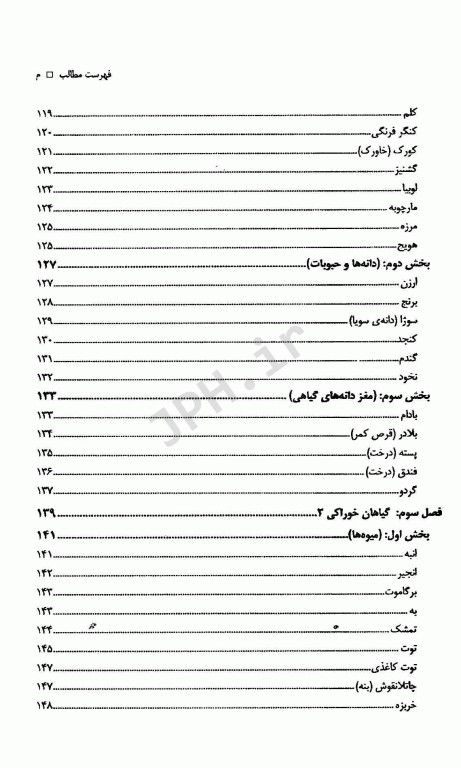 فهرست مطالب □ م
کلم ... ۱۱۹
کنگر فرنگی ... ۱۲۰
کورک (خاورک) ... ۱۲۱
گشنیز ... ۱۲۲
لوبیا ... ۱۲۳
مارچوبه ... ۱۲۴
مرزه ... ۱۲۵
هویج ... ۱۲۵
بخش دوم: (دانه‌ها و حبوبات) ... ۱۲۷
ارزن ... ۱۲۷
برنج ... ۱۲۸
سوژا (دانه‌ی سویا) ... ۱۲۹
کنجد ... ۱۳۰
گندم ... ۱۳۱
نخود ... ۱۳۲
بخش سوم: (مغز دانه‌های گیاهی) ... ۱۳۳
بادام ... ۱۳۳
بلادر (قرص کمر) ... ۱۳۴
پسته (درخت) ... ۱۳۵
فندق (درخت) ... ۱۳۶
گردو ... ۱۳۷
فصل سوم: گیاهان خوراکی ۲ ... ۱۳۹
بخش اول: (میوه‌ها) ... ۱۴۱
انبه ... ۱۴۱
انجیر ... ۱۴۲
برگاموت ... ۱۴۳
به ... ۱۴۳
تمشک ... ۱۴۴
توت ... ۱۴۵
توت کاغذی ... ۱۴۷
چاتلانقوش (بنه) ... ۱۴۷
خربزه ... ۱۴۸
JPH.ir